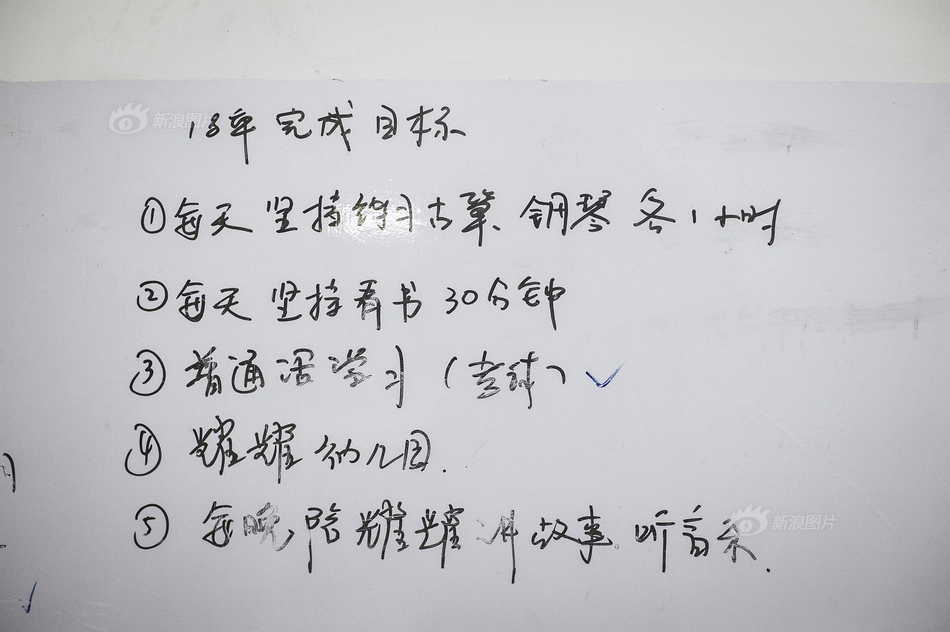 新浪图片
18年完成目标
①每天坚持练习古筝、钢琴各1小时
②每天坚持看书30分钟
③普通话学习(考试)✓
④耀耀幼儿园.
⑤每晚陪耀耀讲故事.听音乐.
新浪图片